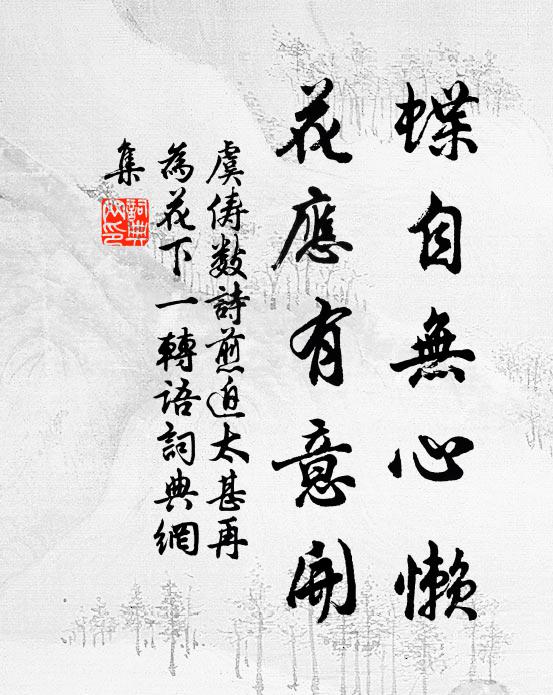 蝶自無心懶
花應有意開
虞儔數詩煎迫太甚再
為花下一轉语詞典網
集
詞典網印